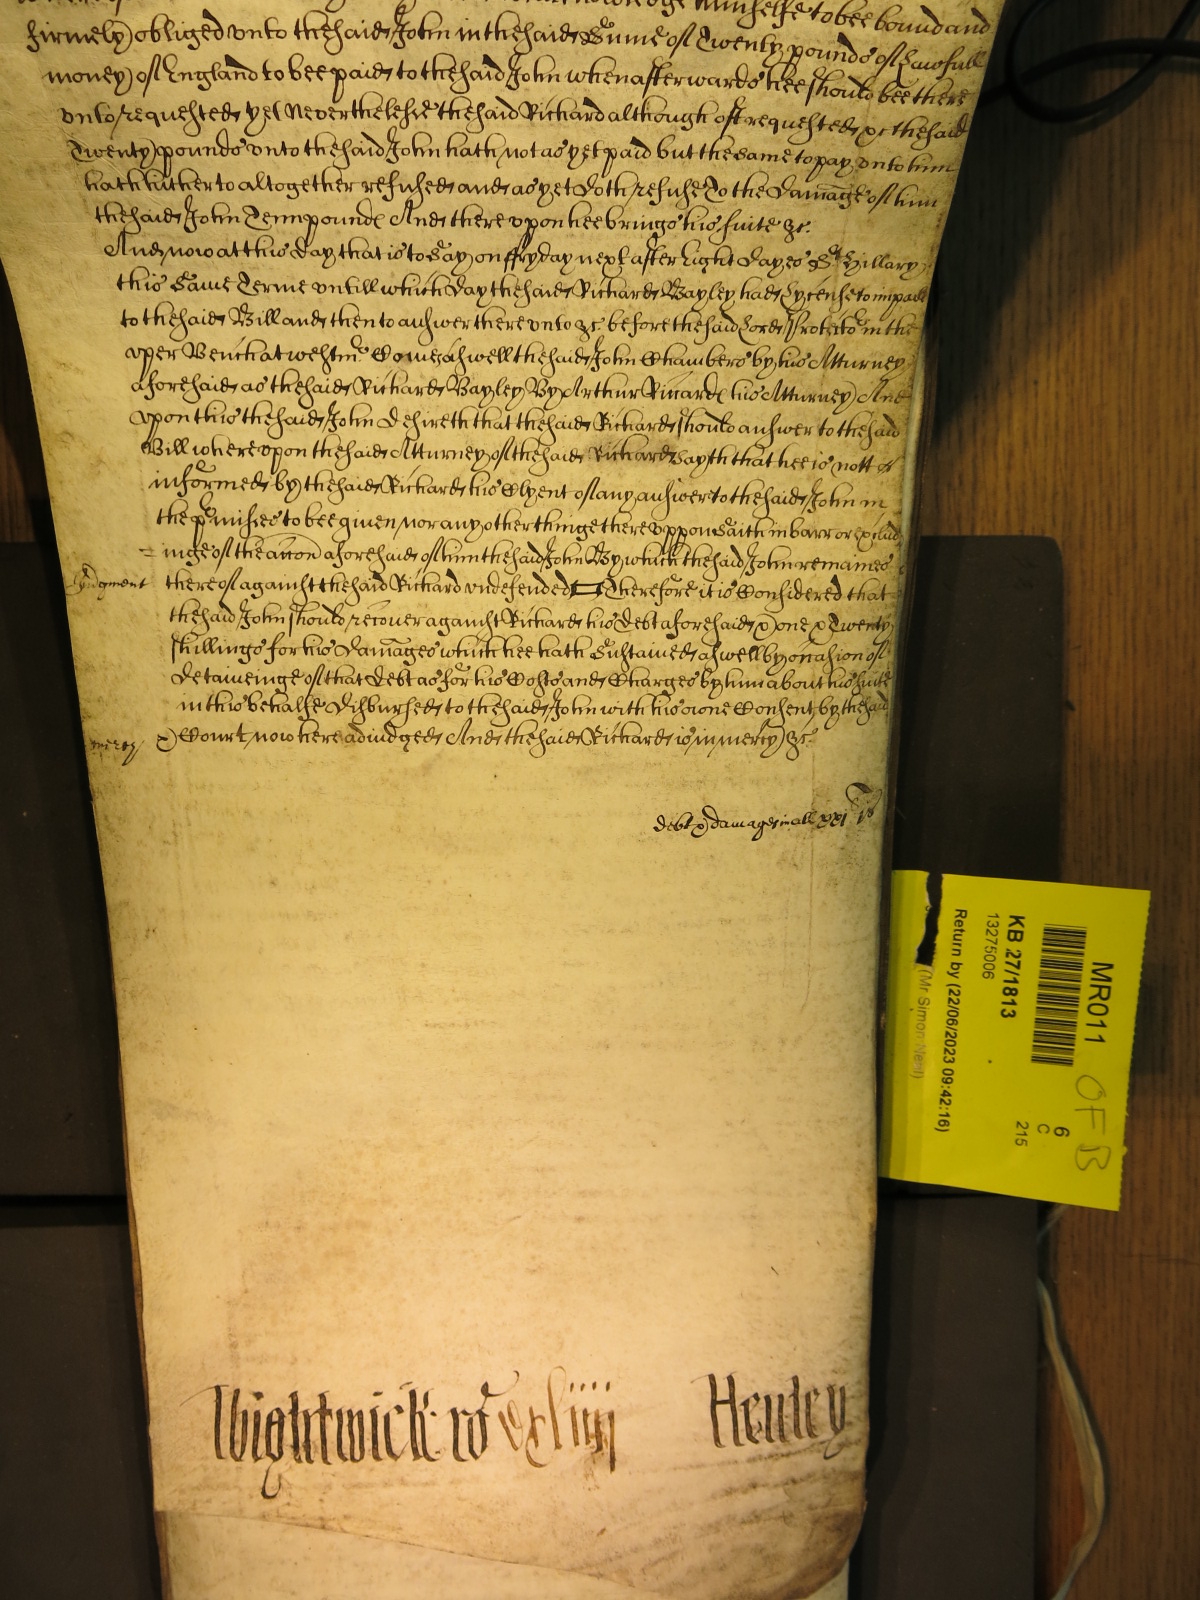 himselfe to bee bound and
firmely obliged vnto the said John in the said Sume of Twenty pounds of Lawfull
money of England to bee paid to the said John when afterwards hee should bee there
vnto requested yet Neverthelesse the said Richard although oft requested &c the said
Twenty pounds vnto the said John hath not as yet paid but the same to pay vnto him
hath hitherto altogether refused and as yet doth refuse To the Damage of him
the said John Tenn pounds And there vpon hee brings his suite &c.
And now at this day that is to Say on ffryday next after Eight Dayes of St Hillary
this Same Terme vntill which day the said Richard Bayley had Lycense to imparle
to the said Bill and then to answer there vnto &c before the said Lord Protector in the
vper Bench at westmr Comes aswell the said John Chambers by his Atturney
aforesaid as the said Richard Bayley By Arthur Ricard his Atturney And
vpon this the said John desireth that the said Richard should answer to the said
Bill where vpon the said Atturney of the said Richard Sayth that hee is nott
informed by the said Richard his Clyent of any answer to the said John in
the pmisses to bee given nor any other thinge there vppon Saith in barr or exclud
= inge of the accon aforesaid of him the said John By which the said John remaines
Judgment thereof against the said Richard vndefended Therefore it is Considered that
the said John should recouer against Richard his Debt aforesaid & one & Twenty
shillings for his Damages which hee hath Sustained aswell by occasion of
Detaineinge of that Debt as for his Costs and Charges by him about his suite
in this behalfe Disbursed to the said John with his owne Consent by the said
mercy Court now here adiudged And the said Richard is in mercy &c.
debt & damages in all xxi li is
Wightwick ro Cxliiii Henley
MR011
OFB
KB 27/1813
13275006
6
C
215
Return by (22/06/2023 09:42:16)
(Mr Simon Neal)